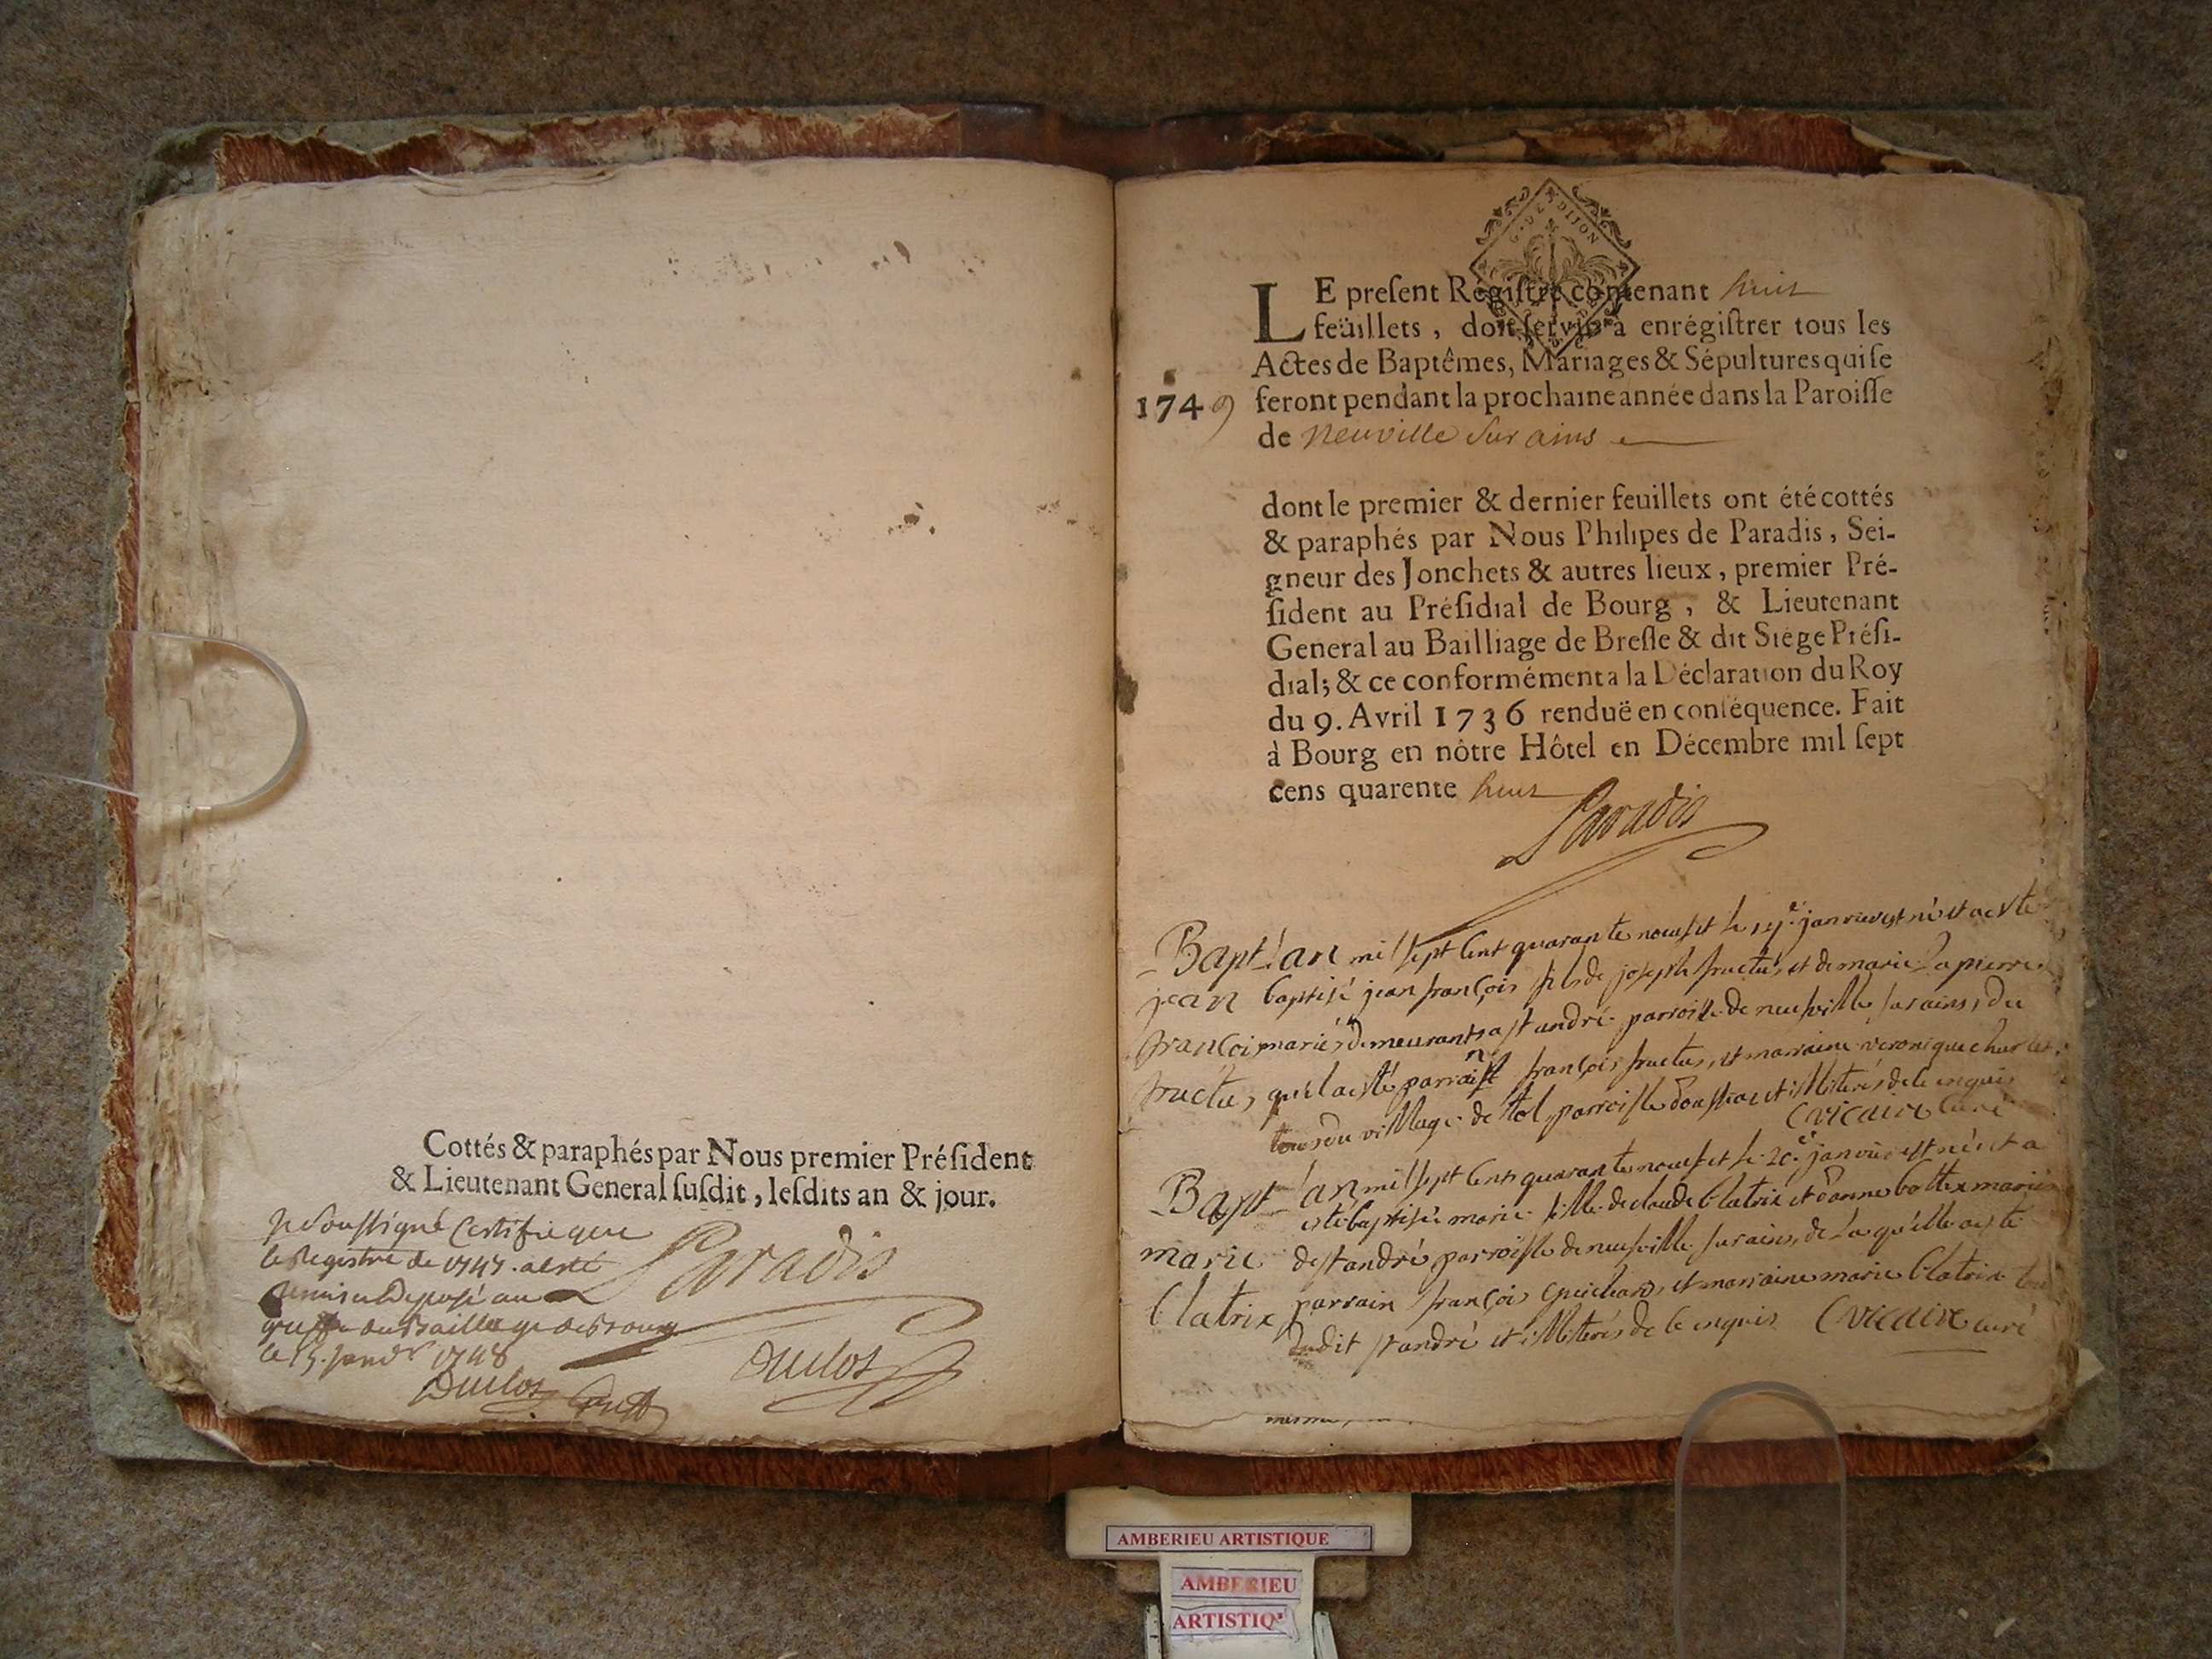 Cottés & paraphés par Nous premier Préſident
& Lieutenant General ſuſdit, leſdits an & jour.
Je Soussigné Certifie que
le Registre de 1747. a esté
remis et Deposé au
greffe du Bailliage de Bourg
le 15. janvr 1748
Paradis
Duclos
Duclos Greff
G. DE DIJON
LE preſent Regiſtre contenant huit
feüillets, doit ſervir à enrégiſtrer tous les
Actes de Baptêmes, Mariages & Sépultures qui ſe
1749 feront pendant la prochaine année dans la Paroiſſe
de Neuville sur ains
dont le premier & dernier feuillets ont été cottés
& paraphés par Nous Philipes de Paradis, Sei-
gneur des Jonchets & autres lieux, premier Pré-
ſident au Préſidial de Bourg, & Lieutenant
General au Bailliage de Breſſe & dit Siége Préſi-
dial; & ce conformément a la Déclaration du Roy
du 9. Avril 1736 renduë en conſéquence. Fait
à Bourg en nôtre Hôtel en Décembre mil ſept
cens quarente huit
Paradis
Bapt. l'an mil sept cent quarante neuf et le janvier est né et a esté
jean baptisé jean françois fils de joseph fructus et de marie Lapierre
françois mariés demeurants a st andré parroisse de neufville sur ains, du
fructus quel a esté parrain françois fructus, et marraine veronique
tous du village de tol parroisse et illiterés de ce enquis
Cvicaire curé
Bapt. l'an mil sept cent quarante neuf et le 20e janvier est née et a
esté baptisée marie fille de claude Clatrix et d'anne bottex mariés
marie de st andré parroisse de neufville sur ains, de Laquelle a esté
Clatrix parrain françois guichard, et marraine marie Clatrix
dudit st andré et illiterés de ce enquis Cvicaire curé
AMBERIEU ARTISTIQUE
AMBERIEU
ARTISTIQ